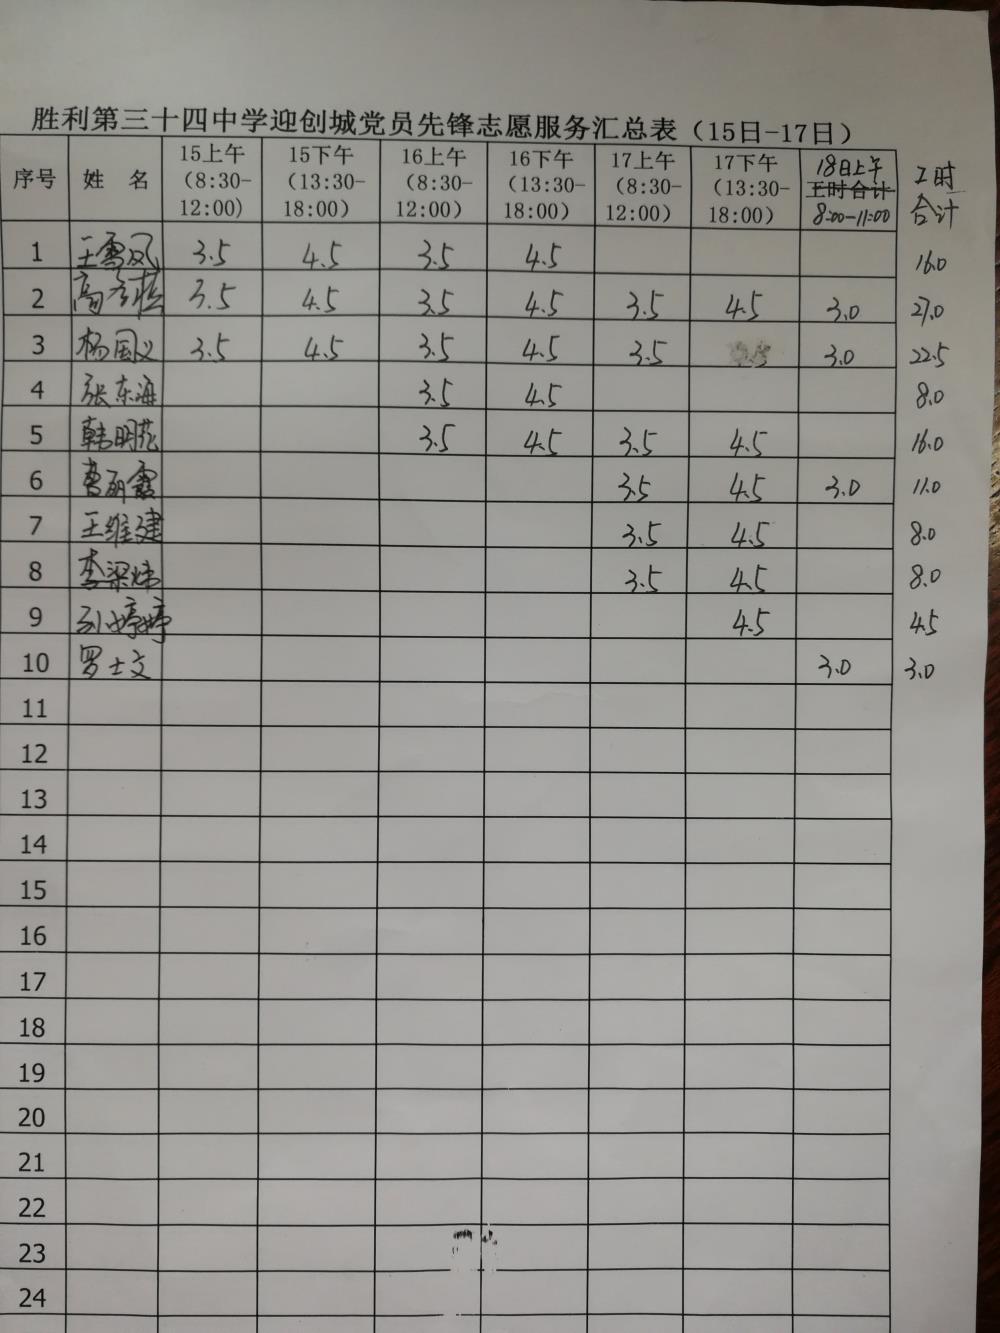 胜利第三十四中学迎创城党员先锋志愿服务汇总表（15日-17日）
序号 姓 名 15上午（8:30-12:00） 15下午（13:30-18:00） 16上午（8:30-12:00） 16下午（13:30-18:00） 17上午（8:30-12:00） 17下午（13:30-18:00） 18日上午 工时合计 8:00-11:00 工时合计
1 王雪凤 3.5 4.5 3.5 4.5 16.0
2 高 3.5 4.5 3.5 4.5 3.5 4.5 3.0 27.0
3 杨国义 3.5 4.5 3.5 4.5 3.5 3.0 22.5
4 张东海 3.5 4.5 8.0
5 韩明花 3.5 4.5 3.5 4.5 16.0
6 曹丽霞 3.5 4.5 3.0 11.0
7 王维建 3.5 4.5 8.0
8 李梁炜 3.5 4.5 8.0
9 刘婷婷 4.5 4.5
10 罗士文 3.0 3.0
11
12
13
14
15
16
17
18
19
20
21
22
23
24